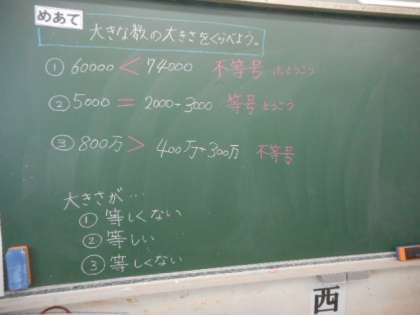 めあて
大きな数の大きさをくらべよう。
① 60000 < 94000 不等号 ふとうごう
② 5000 = 2000+3000 等号 とうごう
③ 800万 > 400万+300万 不等号
大きさが…
① 等しくない
② 等しい
③ 等しくない
西